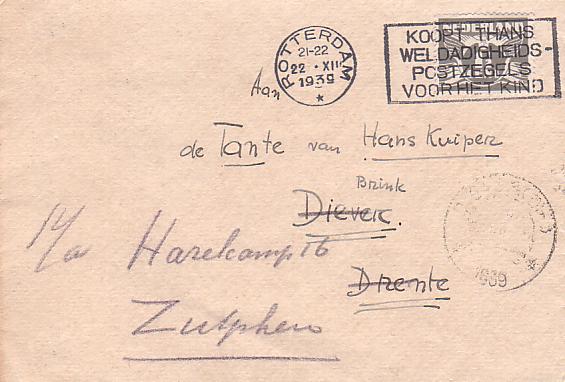 NEDERLAND
ROTTERDAM
21-22
22 · XII
1939
KOOPT THANS
WELDADIGHEIDS-
POSTZEGELS
VOOR HET KIND
Aan
de Tante van Hans Kuiper
Brink
Diever.
Harekamp 16
Drente
Zutphen
1939